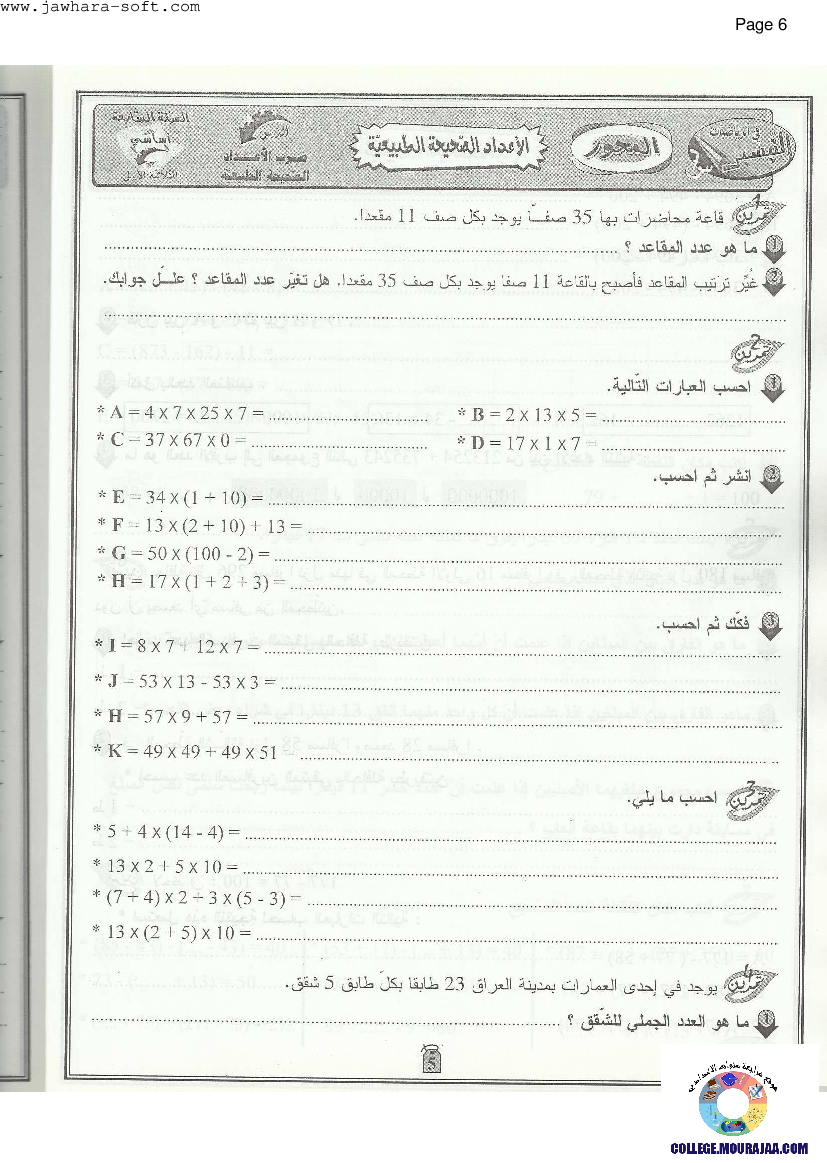 www.jawhara-soft.com
Page 6
السنة السابعة
أساسي
الثلاثي الأول
الدرس
ضرب الأعداد
الصحيحة الطبيعية
الأعداد الصحيحة الطبيعيّة
المحور
في الرياضيات
تمرين 1 قاعة محاضرات بها 35 صفّا يوجد بكل صف 11 مقعدا.
1 ما هو عدد المقاعد ؟ ........................
2 غُيِّر ترتيب المقاعد فأصبح بالقاعة 11 صفا يوجد بكل صف 35 مقعدا. هل تغيّر عدد المقاعد ؟ علّل جوابك.
........................
تمرين 2
1 احسب العبارات التّالية.
* A = 4 x 7 x 25 x 7 = ........................ * B = 2 x 13 x 5 = ........................
* C = 37 x 67 x 0 = ........................ * D = 17 x 1 x 7 = ........................
2 انشر ثم احسب.
* E = 34 x (1 + 10) = ........................
* F = 13 x (2 + 10) + 13 = ........................
* G = 50 x (100 - 2) = ........................
* H = 17 x (1 + 2 + 3) = ........................
3 فكّك ثم احسب.
* I = 8 x 7 + 12 x 7 = ........................
* J = 53 x 13 - 53 x 3 = ........................
* H = 57 x 9 + 57 = ........................
* K = 49 x 49 + 49 x 51 = ........................
تمرين 3 احسب ما يلي.
* 5 + 4 x (14 - 4) = ........................
* 13 x 2 + 5 x 10 = ........................
* (7 + 4) x 2 + 3 x (5 - 3) = ........................
* 13 x (2 + 5) x 10 = ........................
تمرين 4 يوجد في إحدى العمارات بمدينة العراق 23 طابقا بكلّ طابق 5 شقق.
1 ما هو العدد الجملي للشّقق ؟ ........................
5
موقع مراجعة
COLLEGE.MOURAJAA.COM